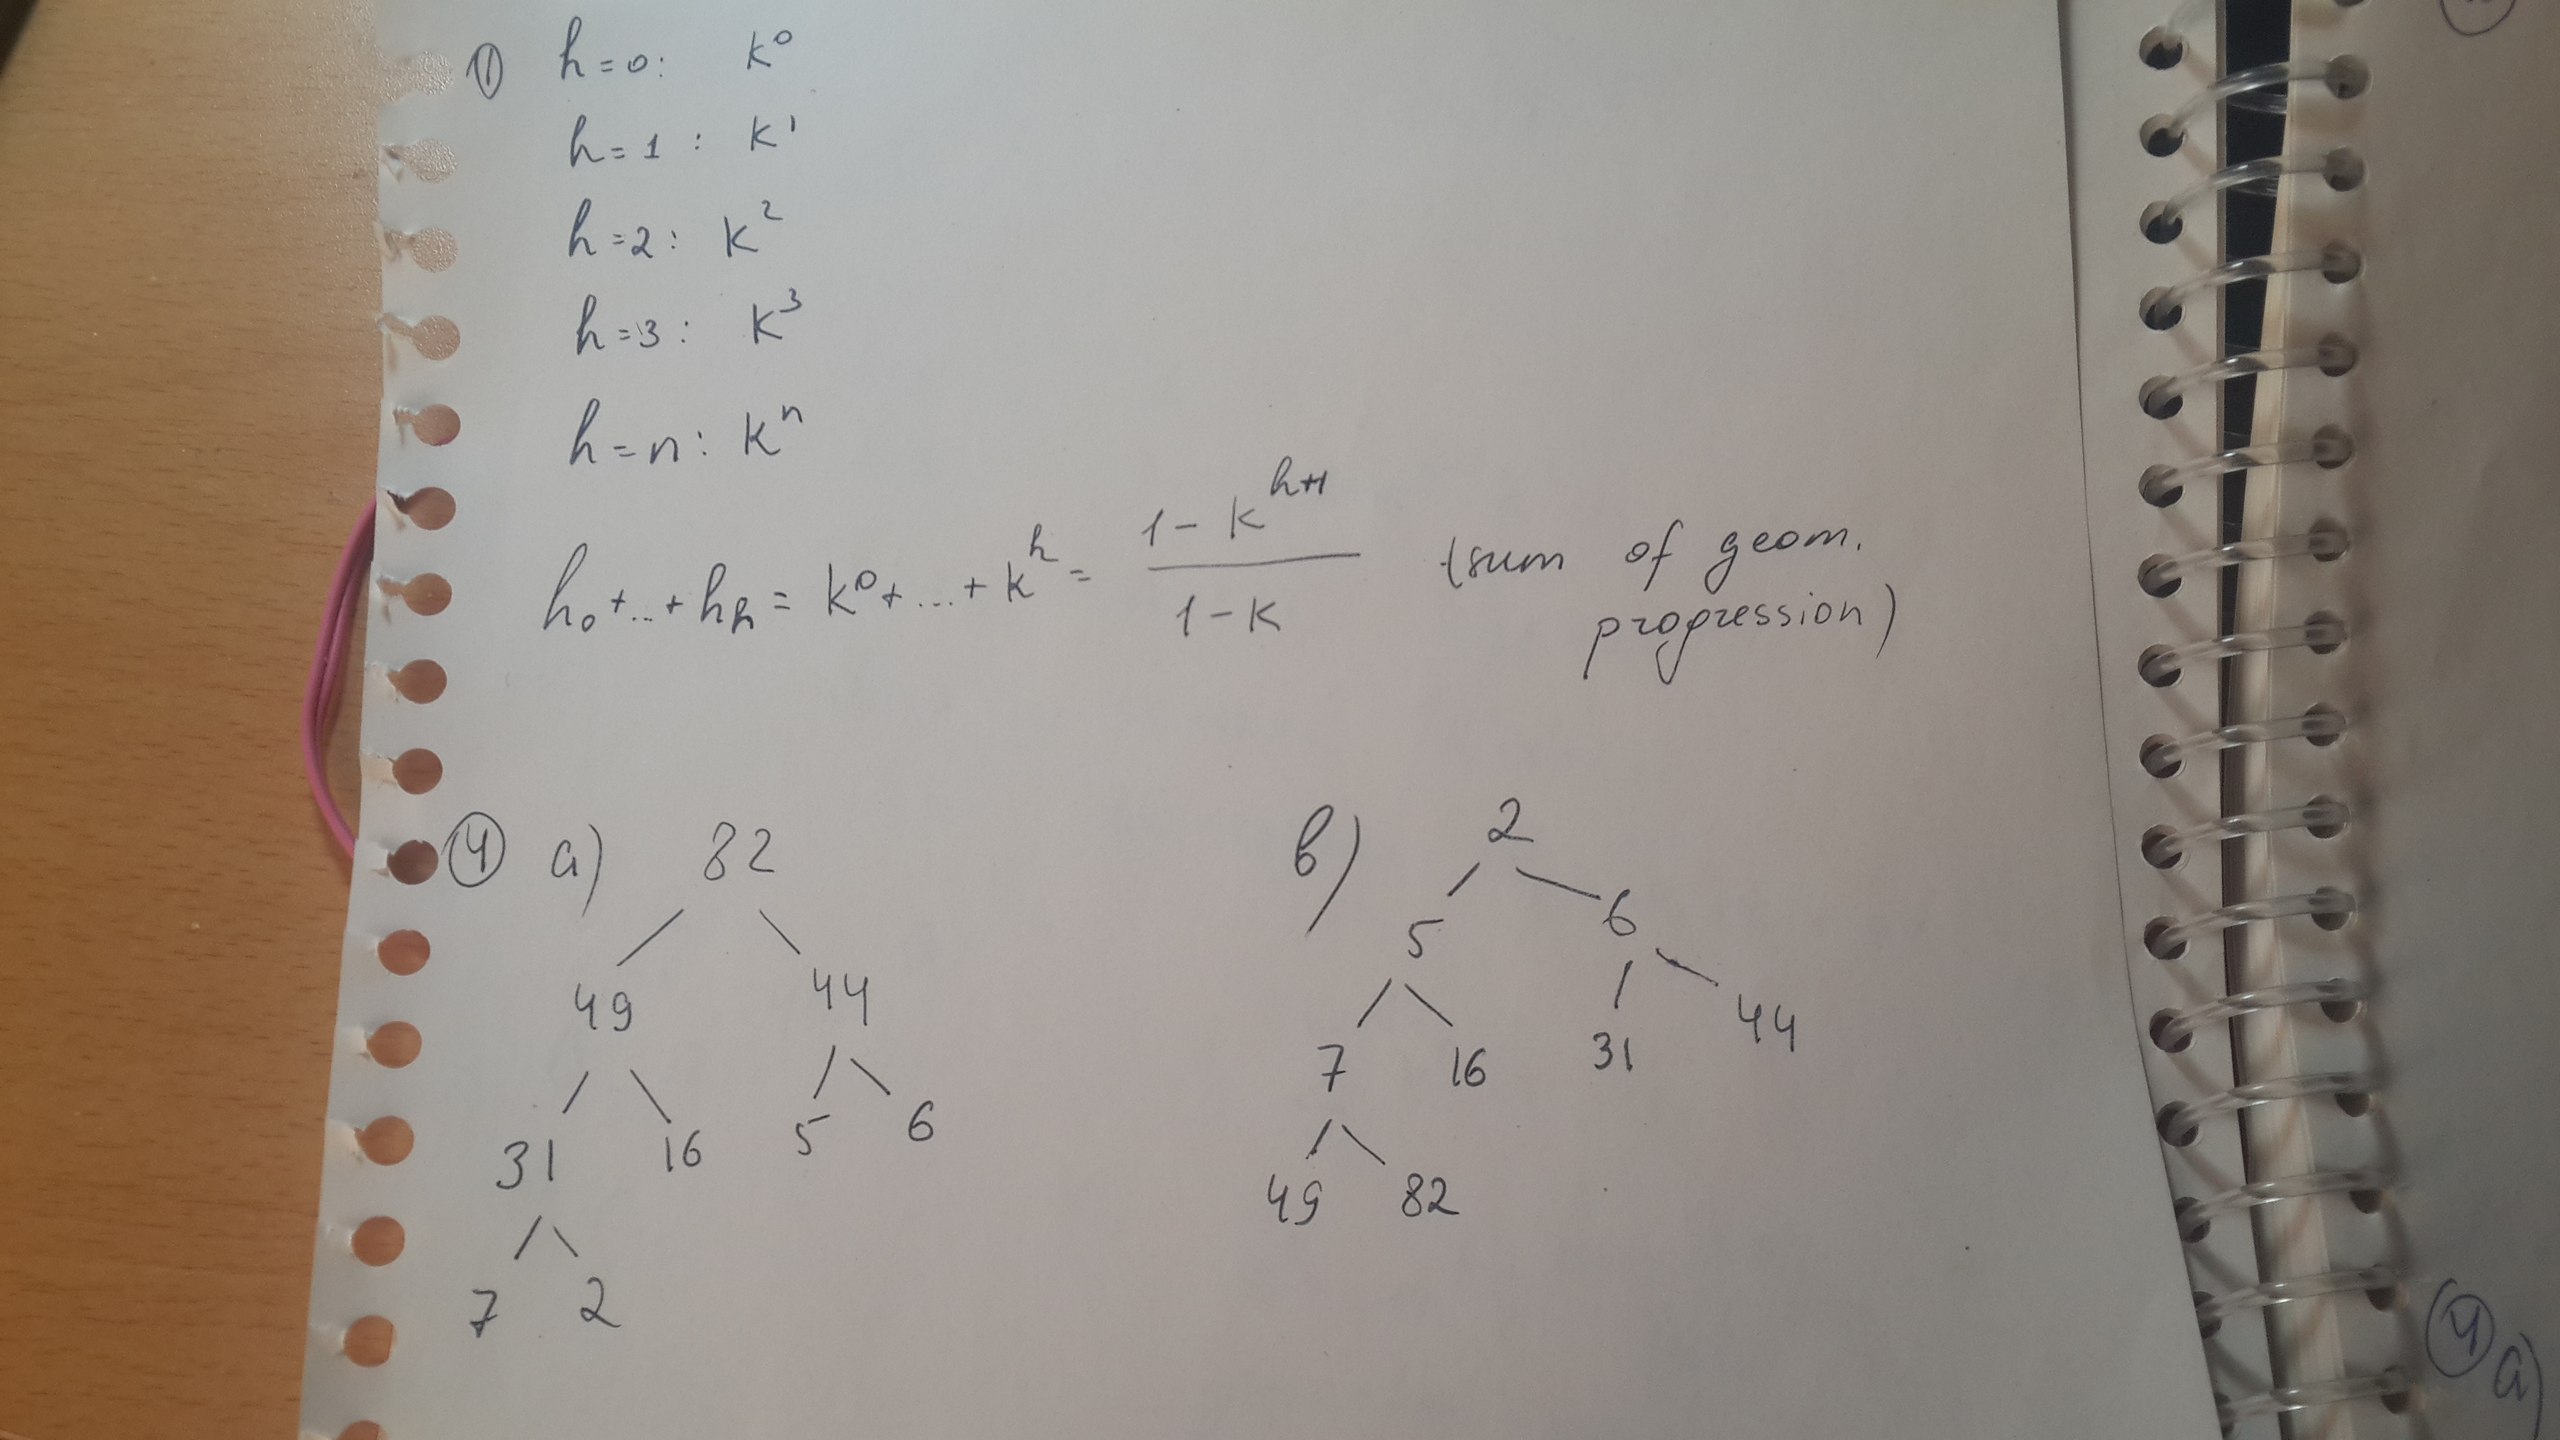 ① h=0: k⁰
h=1: k¹
h=2: k²
h=3: k³
h=n: kⁿ
h₀+..+hₕ = k⁰+...+kʰ = (1-k^(h+1))/(1-k) (sum of geom.
progression)
④ a) 82
49 44
31 16 5 6
7 2
в) 2
5 6
7 16 31 44
49 82
④ a)